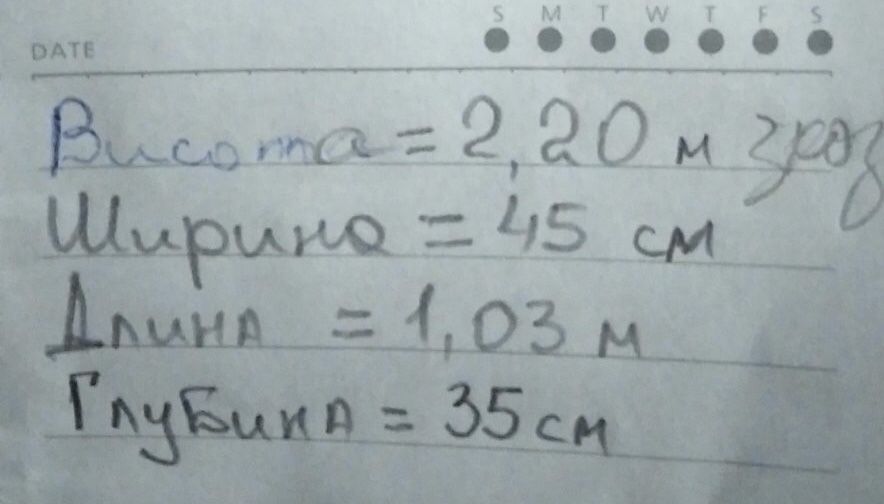 S M T W T F S
DATE
Висота = 2,20 м
Ширина = 45 см
Длина = 1,03 м
Глубина = 35 см